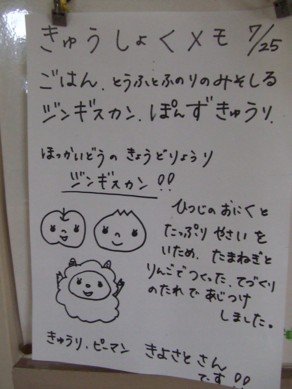 きゅうしょくメモ 7/25
ごはん.とうふとふのりのみそしる
ジンギスカン.ぽんずきゅうり.
ほっかいどうのきょうどりょうり
ジンギスカン!!
ひつじのおにくと
たっぷりやさいを
いため、たまねぎと
りんごでつくった、てづくり
のたれであじつけ
しました。
きゅうり.ピーマン きよさとさん
です!!